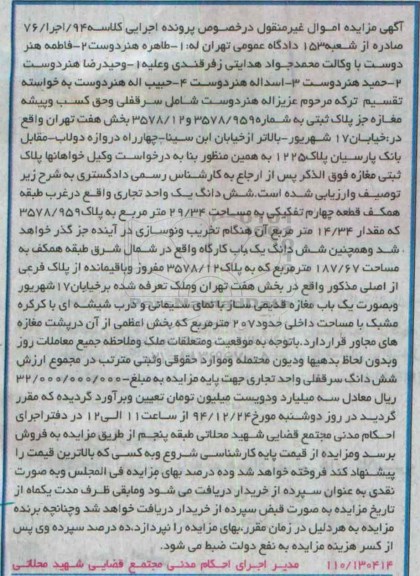 آگهی مزایده اموال غیرمنقول درخصوص پرونده اجرایی کلاسه۹۴/اجرا/۷۶
صادره از شعبه۱۵۳ دادگاه عمومی تهران له:۱-طاهره هنردوست۲-فاطمه هنر
دوست با وکالت محمدجواد هدایتی زفرقندی وعلیه۱-وحیدرضا هنردوست
۲-حمید هنردوست ۳-اسداله هنردوست ۴-حبیب اله هنردوست به خواسته
تقسیم ترکه مرحوم عزیزاله هنردوست شامل سرقفلی وحق کسب وپیشه
مغازه جز پلاک ثبتی به شماره۳۵۷۸/۹۵۹ و۳۵۷۸/۱۲ بخش هفت تهران واقع
در:خیابان۱۷ شهریور-بالاتر ازخیابان ابن سینا-چهارراه دروازه دولاب-مقابل
بانک پارسیان پلاک۱۲۲۵ به همین منظور بنا به درخواست وکیل خواهانها پلاک
ثبتی مغازه فوق الذکر پس از ارجاع به کارشناس رسمی دادگستری به شرح زیر
توصیف وارزیابی شده است.شش دانگ یک واحد تجاری واقع درغرب طبقه
همکف قطعه چهارم تفکیکی به مساحت ۲۹/۳۴ متر مربع به پلاک۳۵۷۸/۹۵۹
که مقدار ۱۴/۳۴ متر مربع آن هنگام تخریب ونوسازی در آینده جز گذر خواهد
شد وهمچنین شش دانگ یک باب کارگاه واقع در شمال شرق طبقه همکف به
مساحت ۱۸۷/۶۷ مترمربع که به پلاک۳۵۷۸/۱۲ مفروز وباقیمانده از پلاک فرعی
از اصلی مذکور واقع در بخش هفت تهران وملک تعرفه شده برخیابان۱۷شهریور
وبصورت یک باب مغازه قدیمی ساز با نمای سیمانی و درب شیشه ای با کرکره
مشبک با مساحت داخلی حدود۲۰۷ مترمربع که بخش اعظمی از آن درپشت مغازه
های مجاور قراردارد.باتوجه به موقعیت ومتعلقات ملک وملاحظه جمیع معاملات روز
وبدون لحاظ بدهیها ودیون محتمله وموارد حقوقی وثبتی مترتب در مجموع ارزش
شش دانگ سرقفلی واحد تجاری جهت پایه مزایده به مبلغ-/۳۲/۰۰۰/۰۰۰/۰۰۰
ریال معادل سه میلیارد ودویست میلیون تومان تعیین وبرآورد گردیده که مقرر
گردید در روز دوشنبه مورخ۹۴/۱۲/۲۴ از ساعت۱۱ الی۱۲ در دفتراجرای
احکام مدنی مجتمع قضایی شهید محلاتی طبقه پنجم از طریق مزایده به فروش
برسد ومزایده از قیمت پایه کارشناسی شروع وبه کسی که بالاترین قیمت را
پیشنهاد کند فروخته خواهد شد وده درصد بهای مزایده فی المجلس وبه صورت
نقدی به عنوان سپرده از خریدار دریافت می شود ومابقی ظرف مدت یکماه از
تاریخ مزایده به صورت قبض سپرده از خریدار دریافت خواهد شد وچنانچه برنده
مزایده به هردلیل در زمان مقرر،بهای مزایده را نپردازد،ده درصد سپرده وی پس
از کسر هزینه مزایده به نفع دولت ضبط می شود.
۱۱۰/۱۳۰۴۱۴ مدیر اجرای احکام مدنی مجتمع قضایی شهید محلاتی